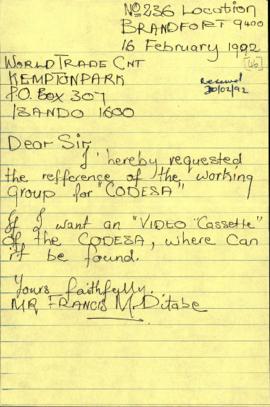 No 236 Location
BRANDFORT 9400
16 February 1992
[46]
WORLD TRADE CNT
KEMPTONPARK
P.O. Box 307
ISANDO 1600
Received
20/02/92
Dear Sir,
I hereby requested
the refference of the working
group for "CODESA"
If I want an "VIDEO Cassette"
of the CODESA, where can
it be found.
Yours faithfully.
MR FRANCIS M. Ditabe